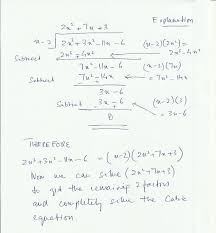 2x² + 7x + 3
Explanation
x-2 2x³ + 3x² - 11x - 6
(x-2)(2x²)
Subtract 2x³ - 4x²
= 2x³ - 4x²
7x² - 11x - 6
(x-2)(7x)
Subtract 7x² - 14x
= 7x² - 14x
3x - 6
(x-2)(3)
Subtract 3x - 6
= 3x - 6
0
THEREFORE
2x³ + 3x² - 11x - 6 = (x-2)(2x² + 7x + 3)
Now we can solve (2x² + 7x + 3)
to get the remaining 2 factors
and completely solve the Cubic
equation.